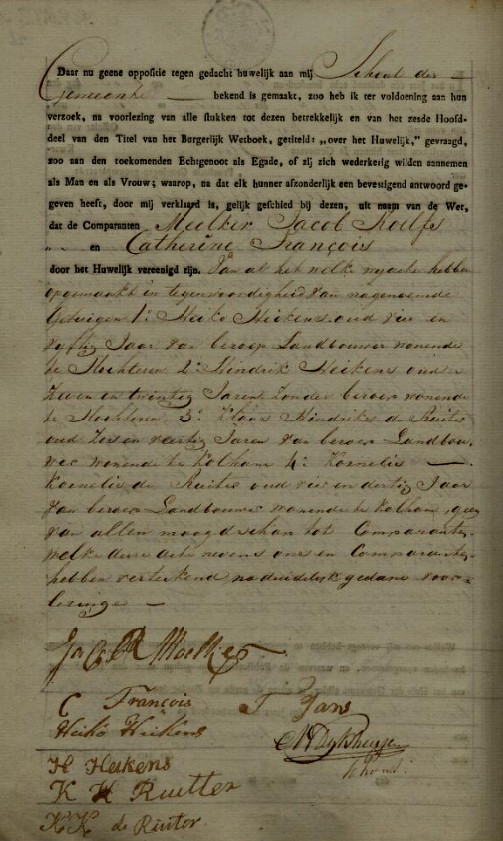 Daar nu geene oppositie tegen gedacht huwelijk aan mij Schout der
Gemeente bekend is gemaakt, zoo heb ik ter voldoening aan hun
verzoek, na voorlezing van alle stukken tot dezen betrekkelijk en van het zesde Hoofd-
deel van den Titel van het Burgerlijk Wetboek, getiteld: „over het Huwelijk," gevraagd,
zoo aan den toekomenden Echtgenoot als Egade, of zij zich wederkerig wilden aannemen
als Man en als Vrouw; waarop, na dat elk hunner afzonderlijk een bevestigend antwoord ge-
geven heeft, door mij verklaard is, gelijk geschied bij dezen, uit naam van de Wet,
dat de Comparanten Mulker Jacob Roelfs
„ „ en Catherina François
door het Huwelijk vereenigd zijn. Van al het welk wij acte hebben
opgemaakt in tegenwoordigheid van nagenoemde
Getuigen 1e Heiko Heikens oud vier en
vijftig Jaar van beroep Landbouwer wonende
te Slochteren 2e Hindrik Heikens oud
zeven en twintig Jaren zonder beroep wonende
te Slochteren 3e Klaas Hindriks de Ruiter
oud zes en veertig Jaren van beroep Landbou-
wer wonende te Kolham 4e Kornelis
Kornelis de Ruiter oud vier en dertig Jaar
van beroep Landbouwer wonende te Kolham, geen
van allen maagdschap tot Comparanten
welke deze acte nevens ons en Comparanten
hebben vertekend, na duidelijk gedane voor-
lezinge
Jacob R Mulker
C François T Jans
Heiko Heikens
H Heikens
K H Ruitter
Schout
K K de Ruiter